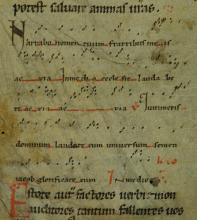 potest saluare animas uras.
Narrabo nomen tuum fratribus meis
ae uia In medio ecclesie lauda bo
te ae uia ae uia Qui timetis
dominum laudate eum uniuersum semen
iacob glorificate eum In medio
Estote aut factores uerbi & non
auditores tantum fallentes uos